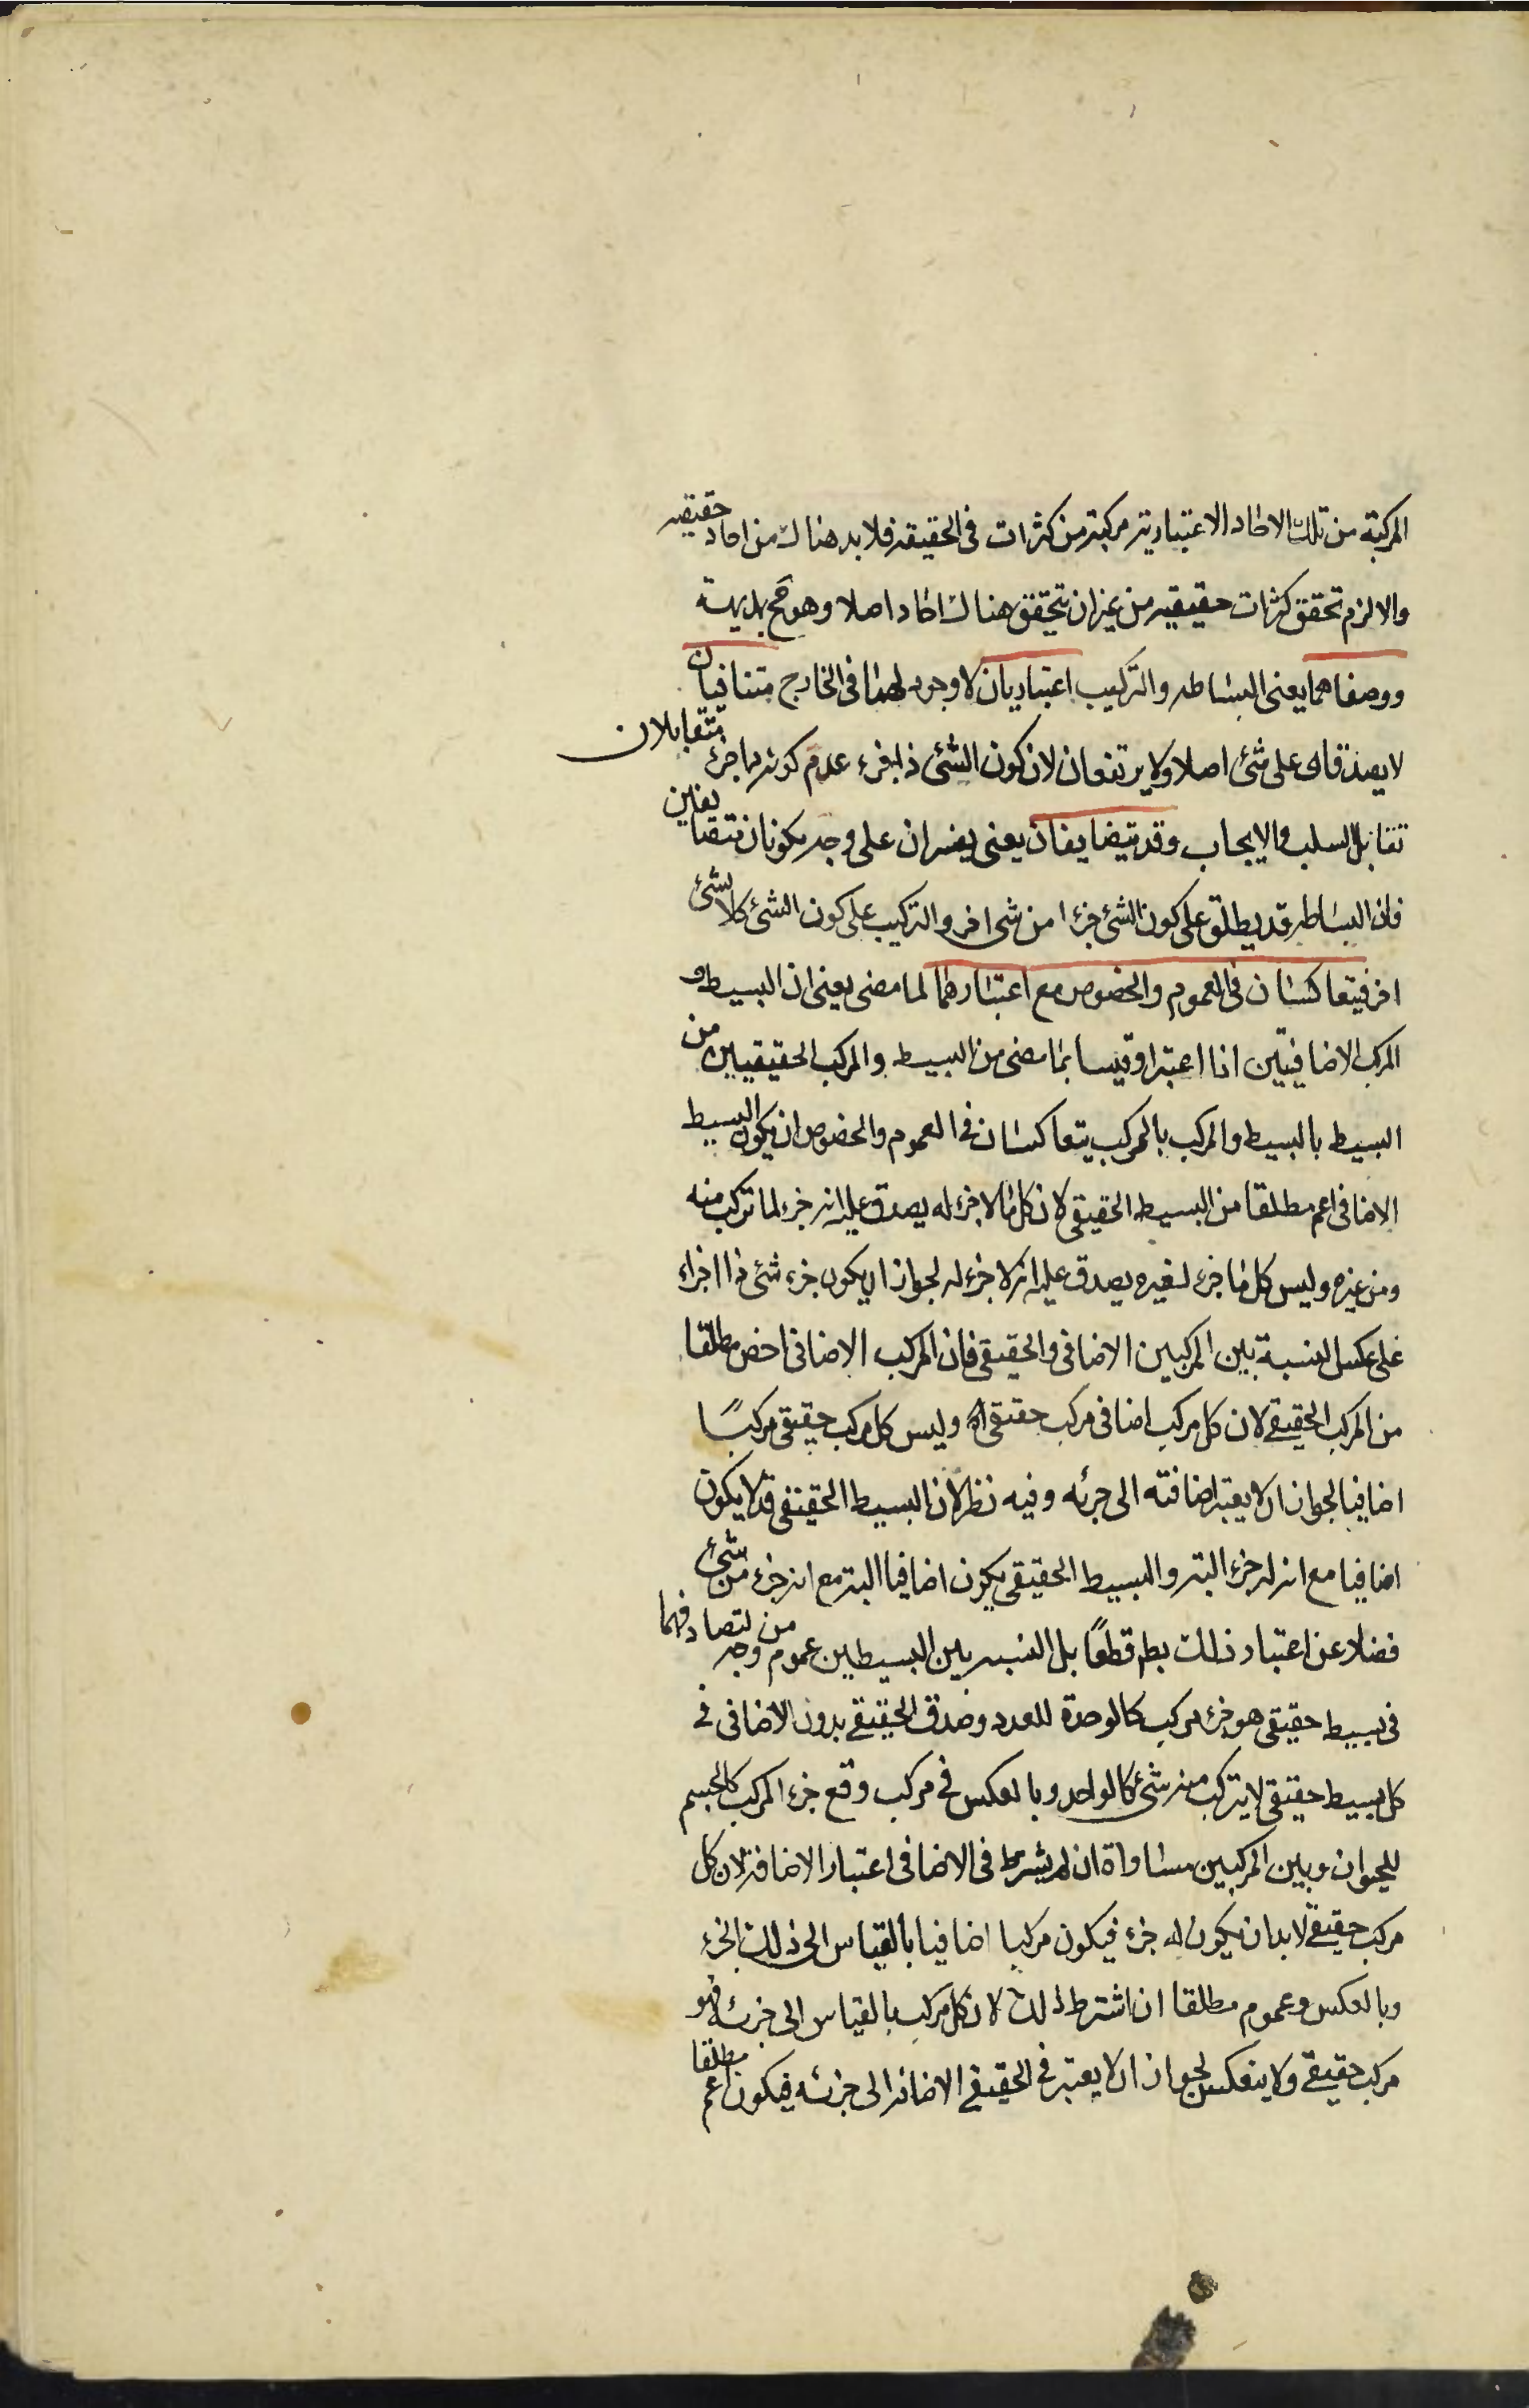 المركبة من تلك الاحاد الاعتبارية مركبة من كثرات فى الحقيقة فلا بد هناك من احاد حقيقيه
والا لزم تحقق كثرات حقيقيه من غير ان يتحقق هناك احاد اصلا وهو مح بديهة
ووصفاهما يعنى البساطه والتركيب اعتباريان لا وجود لهما فى الخارج متنافيان
لا يصدقان على شئ اصلا ولا يرتفعان لان كون الشئ ذا جزء عدم كونه لا جزء متقابلان
تقابل السلب والايجاب وقد يتضايفان يعنى يفسران على وجه يكونان متضايفين
فان البساطه قد يطلق على كون الشئ جزءا من شئ اخر والتركيب على كون الشئ كلا لشئ
اخر فيتعاكسان فى العموم والخصوص مع اعتبارهما لما مضى يعنى ان البسيط و
المركب الاضافيتين اذا اعتبرا وقيسا بما مضى من البسيط والمركب الحقيقيين من
البسيط بالبسيط والمركب بالمركب يتعاكسان فى العموم والخصوص ان يكون البسيط
الاضافى اعم مطلقا من البسيط الحقيقى لان كل ما لا جزء له يصدق عليه انه جزء لما تركب منه
ومن غيره وليس كل ما جزء لغيره يصدق عليه انه لا جزء له لجواز ان يكون جزء شئ ذا اجزاء
على عكس النسبة بين المركبين الاضافى والحقيقى فان المركب الاضافى اخص مطلقا
من المركب الحقيقى لان كل مركب اضافى مركب حقيقى وليس كل مركب حقيقى مركبًا
اضافيا لجواز ان لا يعتبر اضافته الى جزئه وفيه نظر لان البسيط الحقيقى قد لا يكون
اضافيا مع انه له جزء البته والبسيط الحقيقى يكون اضافيا البته مع انه جزء من شئ
فضلا عن اعتبار ذلك بط قطعًا بل النسبه بين البسيطين عموم من وجه لتصادقهما
فى بسيط حقيقى هو جزء مركب كالوحدة للعدد وصدق الحقيقى بدون الاضافى فى
كل بسيط حقيقى لا يتركب منه شئ كالواحد وبالعكس فى مركب وقع جزء المركب كالجسم
للحيوان وبين المركبين مساواة ان لم يشرط فى الاضافى اعتبار الاضافة لان كل
مركب حقيقى لا بد ان يكون له جزء فيكون مركبا اضافيا بالقياس الى ذلك الجزء
وبالعكس وعموم مطلقا ان اشترط ذلك لان كل مركب بالقياس الى جزئه فهو
مركب حقيقى ولا ينعكس لجواز ان لا يعتبر فى الحقيقى الاضافة الى جزئه فيكون اعم مطلقا